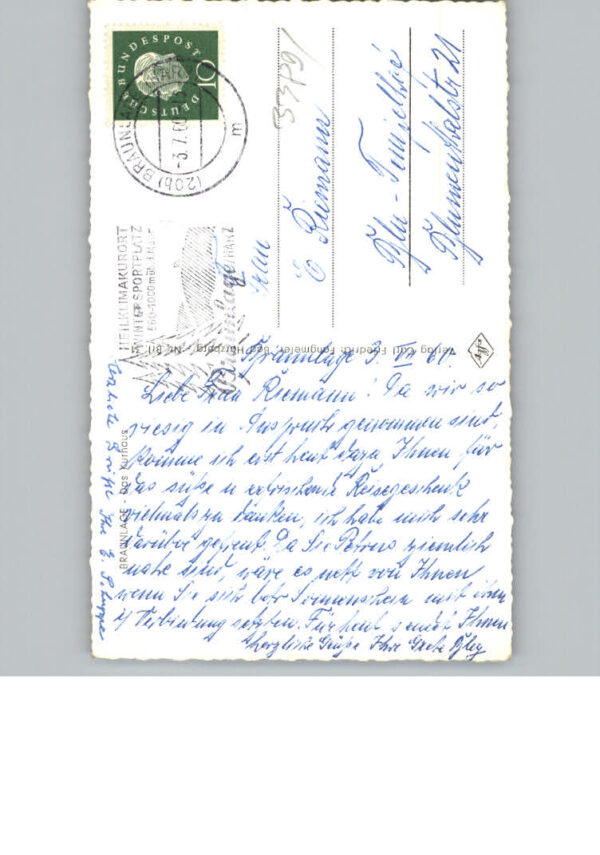 DEUTSCHE BUNDESPOST
10
(20b) BRAUNLAGE
-3.7.60
m
HEILKLIMAKURORT
WINTERSPORTPLATZ
560-1000 m üb. d. Meer
Braunlage
HARZ
33P91
Frau
E Riemann
Bln-Tempelhof
Blumenthalstr 21
Verlag Carl Friedrich Fangmeier, Bad Harzburg - Nr.
BRAUNLAGE - Das Kurhaus
Braunlage 3. VII 60.
Liebe Frau Riemann! Da wir so
riesig in Anspruch genommen sind,
komme ich erst heut dazu Ihnen für
das süße u erfrischende Reisegeschenk
vielmals zu danken, ich habe mich sehr
darüber gefreut. Da Sie Petrus ziemlich
nahe sind, wäre es nett von Ihnen
wenn Sie sich betr Sonnenschein mit ihm
i/ Verbindung setzten. Für heut sendet Ihnen
herzliche Grüße Ihre Grete
Grüße Ihre E.